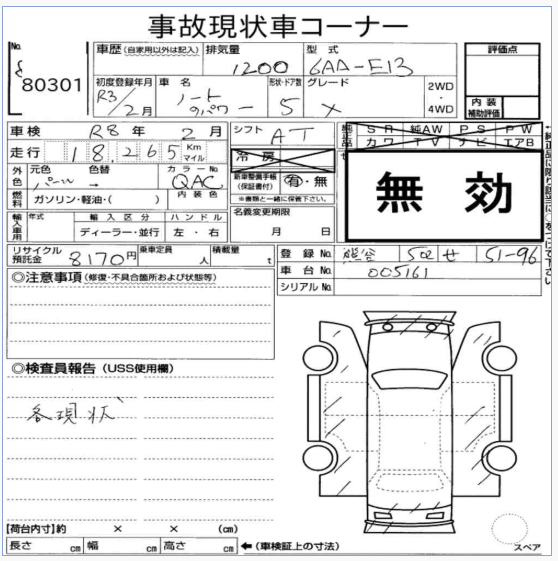 事故現状車コーナー
No. 80301
車歴 (自家用以外は記入) 排気量 1200 型式 6AA-E13 評価点
初度登録年月 R3/2月 車名 ノート eパワー 形状・ドア数 5 グレード X 2WD ・ 4WD 内装補助評価
車検 R8年 2月 シフト AT 純正品 SR 純AW PS PW
カワ TV ナビ エアB
走行 18,265 Km マイル 冷房
外色 元色 パール 色替 → カラーNo. QAC 新車整備手帳(保証書付) 有・無
※書類と一緒に保管下さい。
燃料 ガソリン・軽油・( ) 内装色
無効
名義変更期限 月 日
輸入車用 年式 輸入区分 ハンドル
ディーラー・並行 左・右
リサイクル預託金 8170円 乗車定員 人 積載量 t
登録No. 熊谷 502 せ 51-96
車台No. 005161
シリアルNo.
◎注意事項 (修復・不具合箇所および状態等)
◎検査員報告 (USS使用欄)
各現状
【荷台内寸】約 × × (cm)
長さ cm 幅 cm 高さ cm ←(車検証上の寸法)
スペア